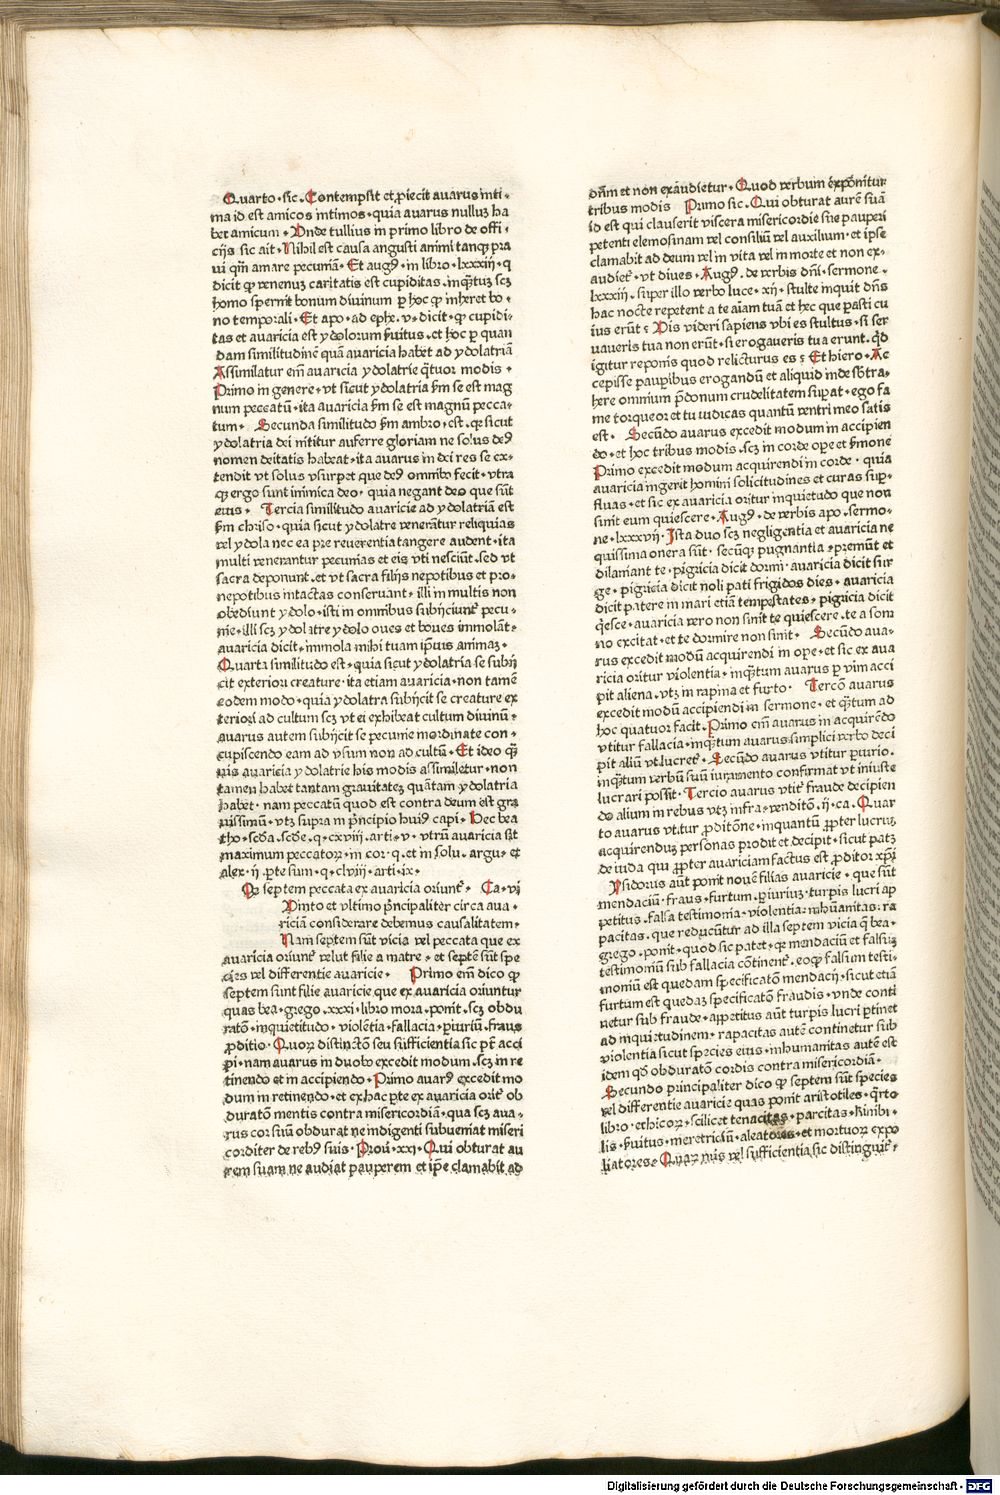 Quarto · sic · Contempsit et ꝓiecit avarus inti·
ma id est amicos intimos · quia avarus nulluꝫ ha
bet amicum · Vnde tullius in primo libro de offi·
cijs sic ait · Nihil est causa angusti animi tanqꝫ pra
ui qm̄ amare pecuniā · Et augꝰ · in libro · lxxxiij · q
dicit ꝙ venenuꝫ caritatis est cupiditas · inqͣtuꝫ scꝫ
homo spernit bonum diuinum ꝑ hoc ꝙ inheret bo·
no temporali · Et apo · ad ephe · v · dicit · ꝙ cupidi·
tas et avaricia est ydolorum ẜuitus · et hoc ꝑ quan
dam similitudinē quā avaricia habet ad ydolatriā
Assimilatur em̄ avaricia ydolatrie qͣtuor modis ·
Primo in genere · vt sicut ydolatria ẜm se est mag
num peccatū · ita avaricia ẜm se est magnū pecca·
tum · Secunda similitudo ẜm ambro · est · qꝫ sicut
ydolatria dei nititur auferre gloriam ne solus deꝰ
nomen deitatis habeat · ita avarus in dei res se ex·
tendit vt solus vsurpet que deꝰ omnibꝰ fecit · vtra
qꝫ ergo sunt inimica deo · quia negant deo que sūt
eius · Tercia similitudo avaricie ad ydolatriā est
ẜm chriso · quia sicut ydolatre venerātur reliquias
vel ydola nec ea pre reuerentia tangere audent · ita
multi venerantur pecunias et eis vti nesciūt · sed vt
sacra deponunt · et vt sacra filijs nepotibus et pro·
nepotibus intactas conseruant · illi in multis non
obediunt ydolo · isti in omnibus subijciunt̄ pecu·
nie · illi scꝫ ydolatre ydolo oues et boues immolāt ·
avaricia dicit · immola mihi tuam ip̄ius animaꝫ ·
Quarta similitudo est · quia sicut ydolatria se subij
cit exteriori creature · ita etiam avaricia · non tamē
eodem modo · quia ydolatra subijcit se creature ex
teriori ad cultum scꝫ vt ei exhibeat cultum diuinū ·
avarus autem subijcit se pecunie inordinate con·
cupiscendo eam ad vsum non ad cultū · Et ideo qͣ
uis avaricia ydolatrie his modis assimiletur · non
tamen habet tantam grauitateꝫ quātam ydolatria
habet · nam peccatū quod est contra deum est gra
uissimū · vtꝫ supra in p̄ncipio huiꝰ capi · Hec bea
tho · scd̄a · scd̄e · q · cxviij · arti · v · vtrū avaricia sit
maximum peccatoꝝ · in cor · q · et in solu · argu · et
alex · ij · ꝑte sum · q · clviij · arti · ix ·
Qꝙ septem peccata ex avaricia oriunt̄ · Ca · vj
Vinto et vltimo p̄ncipaliter circa ava·
riciā considerare debemus causalitatem ·
Nam septem sūt vicia vel peccata que ex
avaricia oriunt̄ velut filie a matre · et septē sūt spe
cies vel differentie avaricie · Primo em̄ dico ꝙ
septem sunt filie avaricie que ex avaricia oriuntur
quas bea · grego · xxxi · libro mora · ponit · scꝫ obdu
ratō · inquietitudo · violētia · fallacia · ꝑiuriū · fraus
ꝓditio · Quoꝝ distinctō seu sufficientia sic pt̄ acci
pi · nam avarus in duobꝰ excedit modum · scꝫ in re
tinendo et in accipiendo · Primo avarꝰ excedit mo
dum in retinendo · et ex hac ꝑte ex avaricia orit̄ ob
duratō mentis contra misericordiā · qua scꝫ ava·
rus cor suū obdurat ne indigenti subueniat miseri
corditer de rebꝰ suis · Prou · xxi · Qui obturat au
rem suam ne audiat pauperem et ip̄e clamabit ad
dn̄m et non exaudietur · Quod verbum exponitur
tribus modis Primo sic · Qui obturat aurē suā
id est qui clauserit viscera misericordie sue pauperi
petenti elemosinam vel consiliū vel auxilium · et ipse
clamabit ad deum vel in vita vel in morte et non ex·
audiet̄ · vt diues · Augꝰ · de verbis dn̄i · sermone ·
lxxxiij · super illo verbo luce · xij · stulte inquit dn̄s
hac nocte repetent a te aīam tuā et hec que ꝑasti cu
ius erūt · Vis videri sapiens vbi es stultus · si ser
uaueris tua non erūt · si erogaueris tua erunt · qd̄
igitur reponis quod relicturus es · Et hiero · Ac
cepisse pauꝑibus erogandū et aliquid inde sbtra·
here omnium p̄donum crudelitatem suꝑat · ego fa
me torqueor et tu iudicas quantū ventri meo satis
est · Secūdo avarus excedit modum in accipien
do · et hoc tribus modis · scꝫ in corde ope et ẜmone
Primo excedit modum acquirendi in corde · quia
avaricia ingerit homini solicitudines et curas suꝑ·
fluas · et sic ex avaricia oritur inquietudo que non
sinit eum quiescere · Augꝰ · de verbis apo · sermo·
ne · lxxxvij · Ista duo scꝫ negligentia et avaricia ne
quissima onera sūt · secūqꝫ pugnantia · premūt et
dilaniant te · pigricia dicit dormi · avaricia dicit sur
ge · pigricia dicit noli pati frigidos dies · avaricia
dicit patere in mari etiā tempestates · pigricia dicit
qͥesce · avaricia vero non sinit te quiescere · te a som
no excitat · et te dormire non sinit · Secūdo ava·
rus excedit modū acquirendi in ope · et sic ex ava
ricia oritur violentia · inqͣtum avarus ꝑ vim acci
pit aliena · vtꝫ in rapina et furto · Tercō avarus
excedit modū accipiendi in sermone · et qͣtum ad
hoc quatuor facit · Primo em̄ avarus in acquirēdo
vtitur fallacia · inqͣtum avarus simplici verbo deci
pit aliū vt lucret̄ · Secūdo avarus vtitur ꝑiurio ·
inqͣtum verbū suū iuramento confirmat vt iniuste
lucrari possit · Tercio avarus vtit̄ fraude decipien
do alium in rebus vtꝫ infra · venditō · ij · ca · Quar
to avarus vtitur ꝓditōne · inquantū ꝓpter lucruꝫ
acquirenduꝫ personas prodit et decipit · sicut patꝫ
de iuda qui ꝓpter auariciam factus est ꝓditor xp̄i
Ysidorus aūt ponit nouē filias avaricie · que sūt
mendaciū · fraus · furtum · ꝑiuriuꝫ · turpis lucri ap
petitus · falsa testimonia · violentia · inhūanitas · ra
pacitas · que reducūtur ad illa septem vicia q̄ bea·
grego · ponit · quod sic patet · qꝫ mendaciū et falsuꝫ
testimoniū sub fallacia cōtinent̄ · eo ꝙ falsum testi·
moniū est quedam specificatō mendacij · sicut etiā
furtum est quedaꝫ specificatō fraudis · vnde conti
netur sub fraude · appetitus aūt turpis lucri ꝑtinet
ad inquietudinem · rapacitas autē continetur sub
violentia sicut species eius · inhumanitas autē est
idem qd̄ obduratō cordis contra misericordiā ·
Secundo principaliter dico ꝙ septem sūt species
vel differentie avaricie quas ponit aristotiles · qͣrto
libro · ethicoꝝ · scilicet tenacitas · parcitas · kinibi·
lis · ẜuitus · meretriciū · aleatores · et mortuoꝝ expo
liatores · Quaꝝ nūs vel sufficientia sic distinguit̄ ·
Digitalisierung gefördert durch die Deutsche Forschungsgemeinschaft - DFG